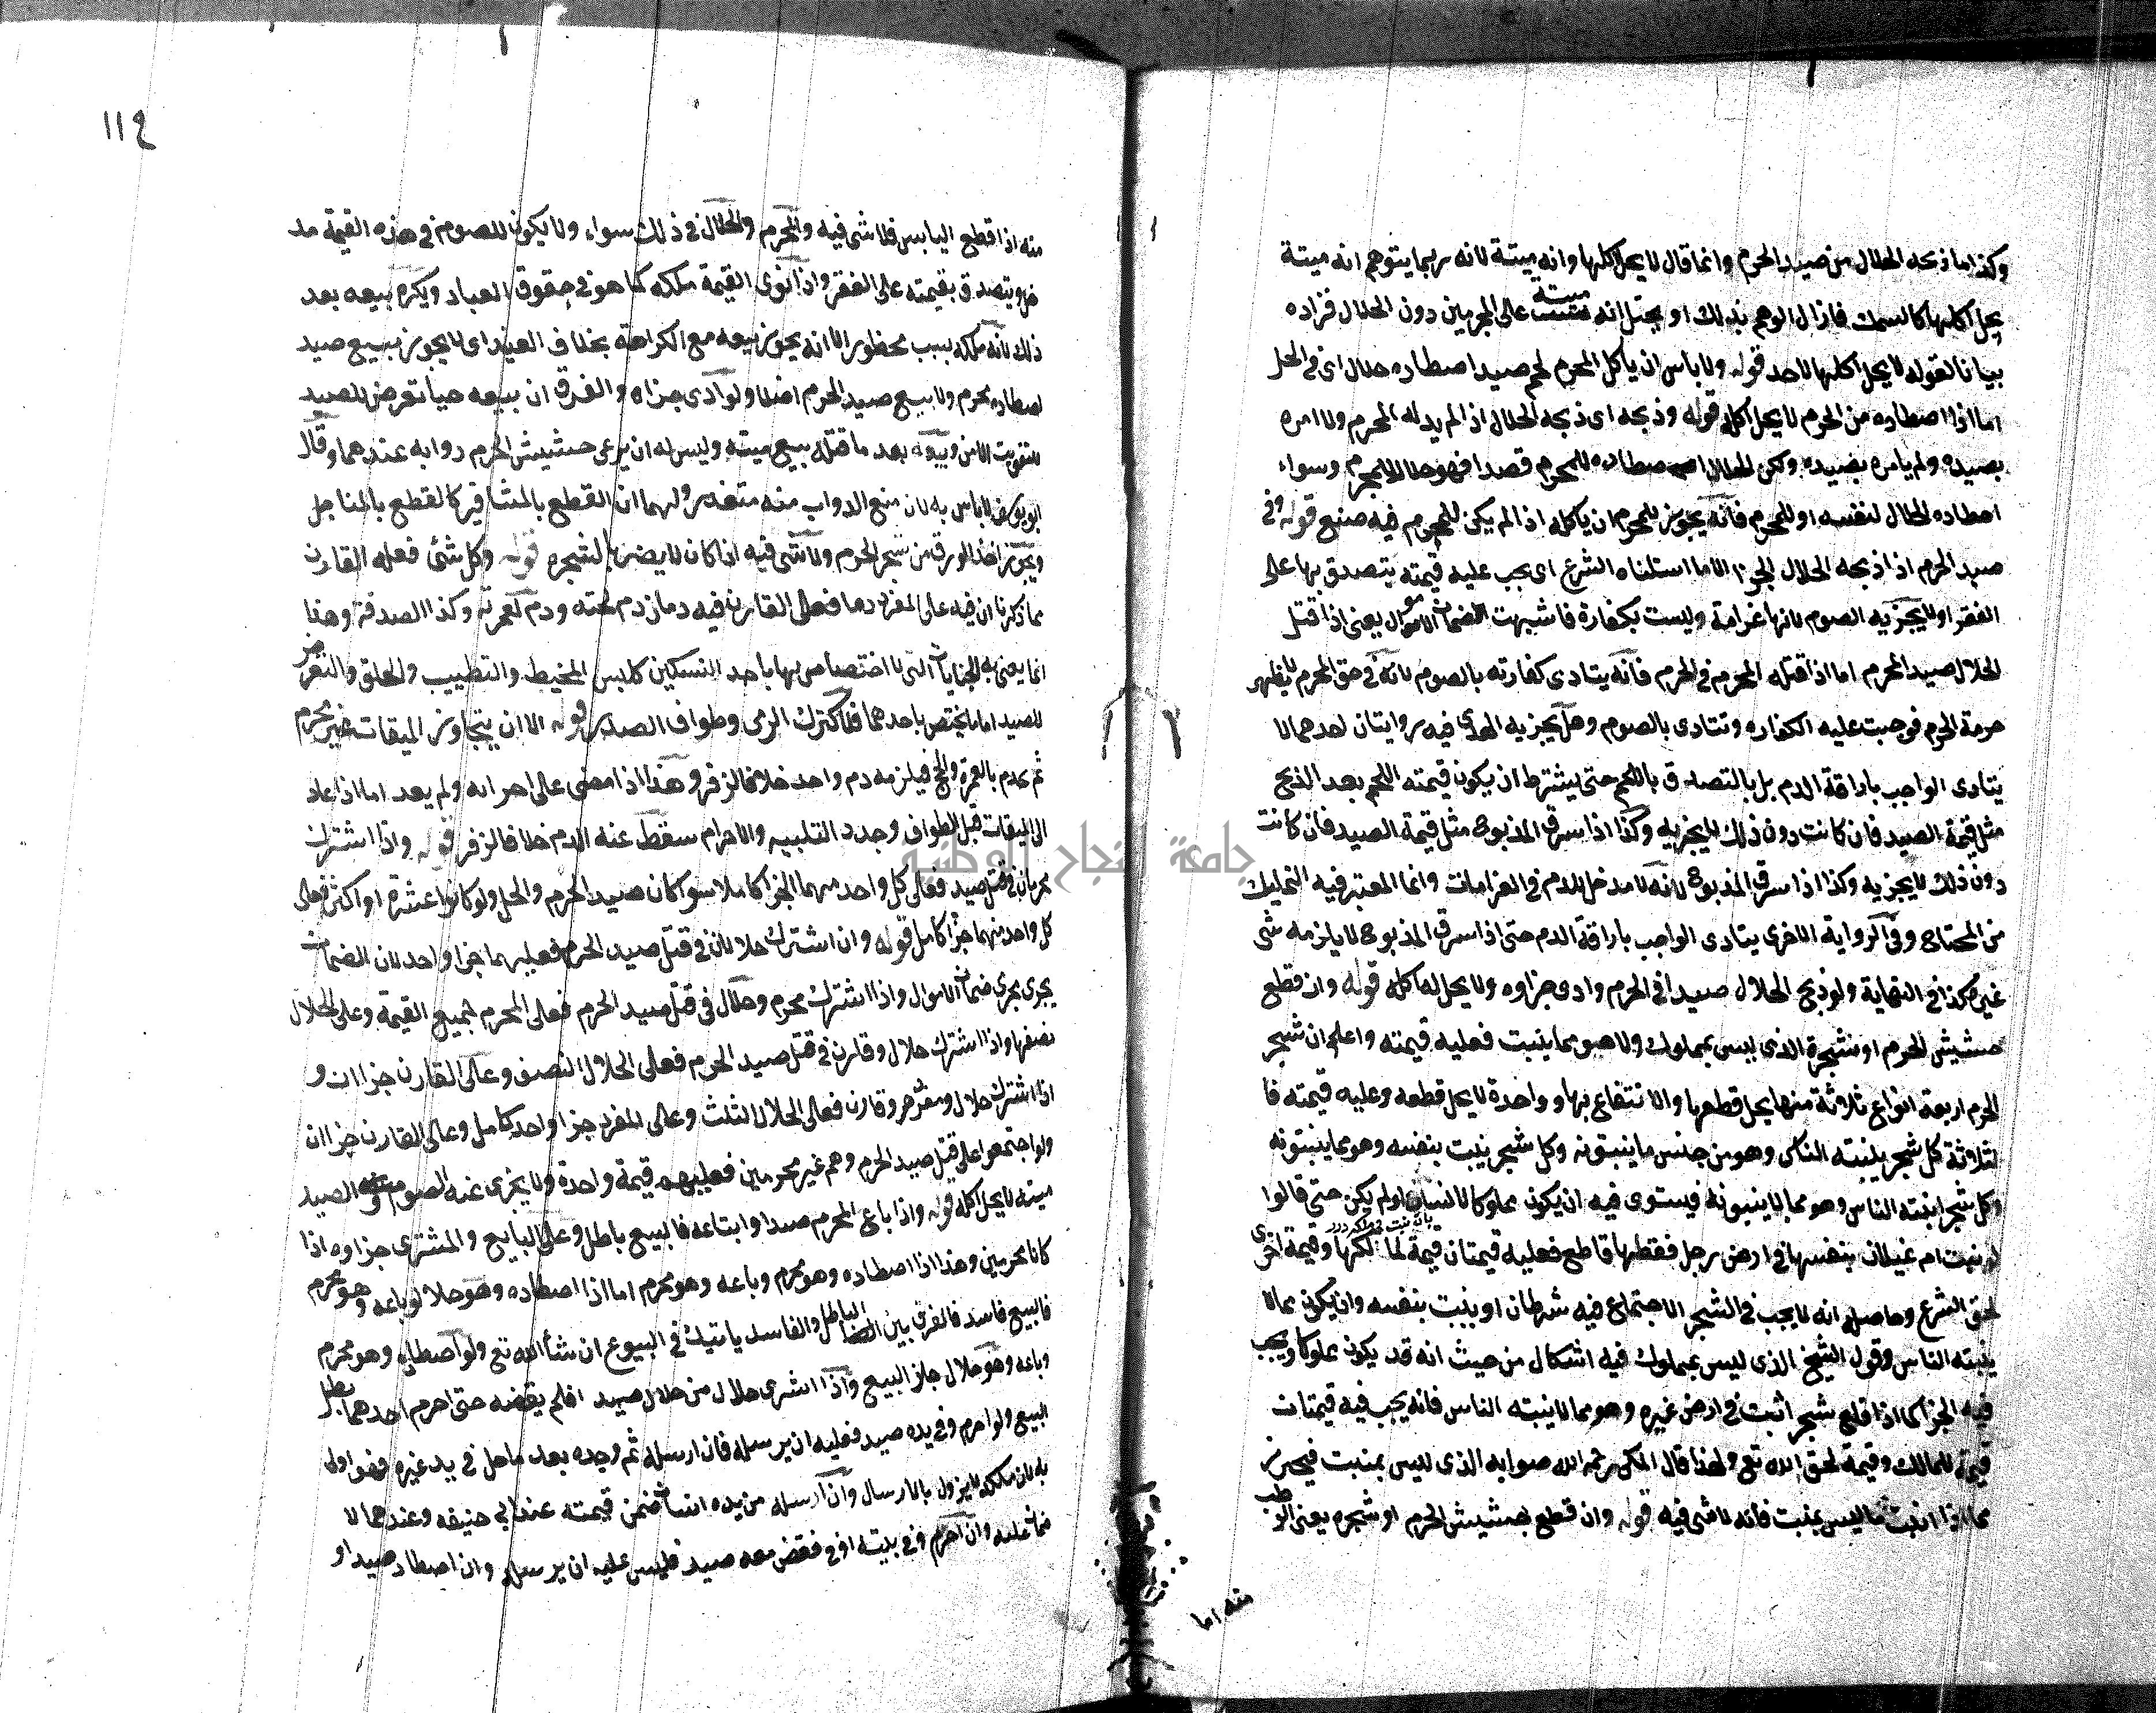 وكذا ما ذبحه الحلال من صيد الحرم وانما قال لا يحل اكلها وانه ميتة لانه ربما يتوهم انه ميتة
يحل اكلها كالسمك فازال الوهم بذلك او يحتمل انه ميته على المحرمين دون الحلال فزاده
بيانا لقوله لا يحل اكلها لاحد قوله ولا باس ان ياكل المحرم لحم صيد اصطاده حلال اى فى الحل
اما اذا اصطاده من الحرم لا يحل اكله قوله وذبحه اى ذبحه الحلال اذا لم يدله المحرم ولا امره
بصيده ولم يامره بصيده ولكن الحلال اصطاده للمحرم قصدا فهو حلال للمحرم وسواء
اصطاده الحلال لنفسه او للمحرم فانه يجوز للمحرم ان ياكله اذا لم يكن للمحرم فيه صنع قوله وفى
صيد الحرم اذا ذبحه الحلال الجزا الا ما استثناه الشرع اى يجب عليه قيمته يتصدق بها على
الفقرا ولا يجزيه الصوم لانها غرامة وليست بكفارة فاشبهت ضمان الاموال يعنى اذا قتل
الحلال صيد الحرم اما اذا قتله المحرم فى الحرم فانه يتادى كفارته بالصوم لانه فى حق المحرم لا يظهر
حرمة الحرم فوجبت عليه الكفاره وتتادى بالصوم وهل يجزيه الهدى فيه روايتان احدهما لا
يتادى الواجب باراقة الدم بل بالتصدق باللحم حتى يشترط ان يكون قيمته اللحم بعد الذبح
مثل قيمة الصيد فان كانت دون ذلك لا يجزيه وكذا اذا سرق المذبوح مثل قيمة الصيد فان كانت
دون ذلك لا يجزيه وكذا اذا سرق المذبوح لانه لا مدخل للدم فى الغرامات وانما المعتبر فيه التمليك
من المحتاج وفى الرواية الاخرى يتادى الواجب باراقة الدم حتى اذا سرق المذبوح لا يلزمه شى
غيره كذا فى النهاية ولو ذبح الحلال صيدا فى الحرم وادى جزاوه ولا يحل له اكله قوله وان قطع
حشيش الحرم او شجرة الذى ليس بمملوك ولا هو مما ينبت فعليه قيمته واعلم ان شجر
الحرم اربعة انواع ثلاثة منها يحل قطعها والانتفاع بها وواحدة لا يحل قطعه وعليه قيمته فا
لثلاثة كل شجر ينبته الناس وهو من جنس ما ينبتونه وكل شجر ينبت بنفسه وهو مما ينبتونه
وكل شجر انبته الناس وهو مما لا ينبتونه فيستوى فيه ان يكون مملوكا لانسان او لم يكن حتى قالوا
لو نبت ام غيلان بنفسها فى ارض رجل فقطعها قاطع فعليه قيمتان قيمة لمالكها وقيمة اخرى
لحق الشرع وحاصله انه لا يجب فى الشجر الا اجتماع فيه شرطان او ينبت بنفسه وان يكون مما لا
ينبته الناس وقول الشيخ الذى ليس بمملوك فيه اشكال من حيث انه قد يكون مملوكا ويجب
فيه الجزا كما اذا قلع شجر انبت فى ارض غيره وهو مما لا ينبته الناس فانه يجب فيه قيمتان
قيمة للمالك وقيمة لحق الله تع ولهذا قال المكى رحمه الله صوابه الذى ليس بمنبت فيحترز
مما اذا انبت ما ليس بمنبت فانه لا شى فيه قوله وان قطع حشيش الحرم او شجره يعنى الرطب
منه اما
١١٤
منه اذا قطع اليابس فلا شى فيه والمحرم والحلال فى ذلك سواء ولا يكون للصوم فى هذه القيمة مد
خل ويتصدق بقيمته على الفقرا واذا نوى القيمة ملكه كما هو فى حقوق العباد ويكره بيعه بعد
ذلك لانه ملكه بسبب محظور الا انه يجوز بيعه مع الكراهة بخلاف الصيد اى لا يجوز بيع صيد
اصطاده محرم ولا بيع صيد الحرم اصلا ولو ادى جزاه والفرق ان بيعه حيا تعرض للصيد
لتفويت الامن وبيعه بعد ما قتله بيع ميته وليس له ان يرعى حشيش الحرم دوابه عندهما وقال
ابو يوسف لا باس به لان منع الدواب منه متعذر ولهما ان القطع بالمشافر كالقطع بالمناجل
ويجوز اخذ الورق من شجر الحرم ولا شى فيه اذا كان لا يضر بالشجره قوله وكل شئ فعله القارن
مما ذكرنا ان فيه على المفرد دما فعلى القارن فيه دمان دم لحجته ودم لعمرته وكذا الصدقة وهذا
انما يعنى به الجنايات التى لا اختصاص بها باحد النسكين كلبس المخيط والتطييب والحلق والتعرض
للصيد اما ما يختص باحدهما فلا كترك الرمى وطواف الصدر قوله الا ان يتجاوز الميقات غير محرم
ثم يحرم بالعمرة والحج فيلزمه دم واحد خلافا لزفر وهذا اذا مضى على احرامه ولم يعد اما اذا عاد
الى الميقات قبل الطواف وجدد التلبيه والاحرام سقط عنه الدم خلافا لزفر قوله واذا اشترك
محرمان فى قتل صيد فعلى كل واحد منهما الجزا كاملا سوا كان صيد الحرم والحل ولو كانوا عشرة او اكثر فعلى
كل واحد منهما جزا كامل قوله وان اشترك حلالان فى قتل صيد الحرم فعليهما جزا واحد لان الضمان
يجرى مجرى ضمان الاموال واذا اشترك محرم وحلال فى قتل صيد الحرم فعلى المحرم جميع القيمة وعلى الحلال
نصفها واذا اشترك حلال وقارن فى قتل صيد الحرم فعلى الحلال النصف وعلى القارن جزاان و
اذا اشترك حلال ومفرد وقارن فعلى الحلال الثلث وعلى المفرد جزا واحد كامل وعلى القارن جزاان
ولو اجتمعوا على قتل صيد الحرم وهم غير محرمين فعليهم قيمة واحدة ولا يجزى عنه الصوم الصيد
ميته لا يحل اكله قوله واذا باع المحرم صيدا وابتاعه فالبيع باطل وعلى البايع والمشترى جزاوه اذا
كانا محرمين وهذا اذا اصطاده وهو محرم وباعه وهو محرم اما اذا اصطاده وهو حلال وباعه وهو محرم
فالبيع فاسد فالفرق بين الباطل والفاسد ياتيك فى البيوع ان شأ الله تع ولو اصطاده وهو محرم
وباعه وهو حلال جاز البيع واذا اشترى حلال من حلال صيدا فلم يقبضه حتى احرم احدهما بطل
البيع ولو احرم وفى يده صيد فعليه ان يرسله فان ارسله ثم وجده بعد ما حل فى يد غيره فهو اولى
به لان ملكه لا يزول بالارسال وان ارسله من يده انسان ضمن قيمته عند ابى حنيفه وعندهما لا
ضمان عليه وان احرم وفى بيته او فى قفص معه صيد فليس عليه ان يرسله وان اصطاد صيدا و
جامعة النجاح الوطنية